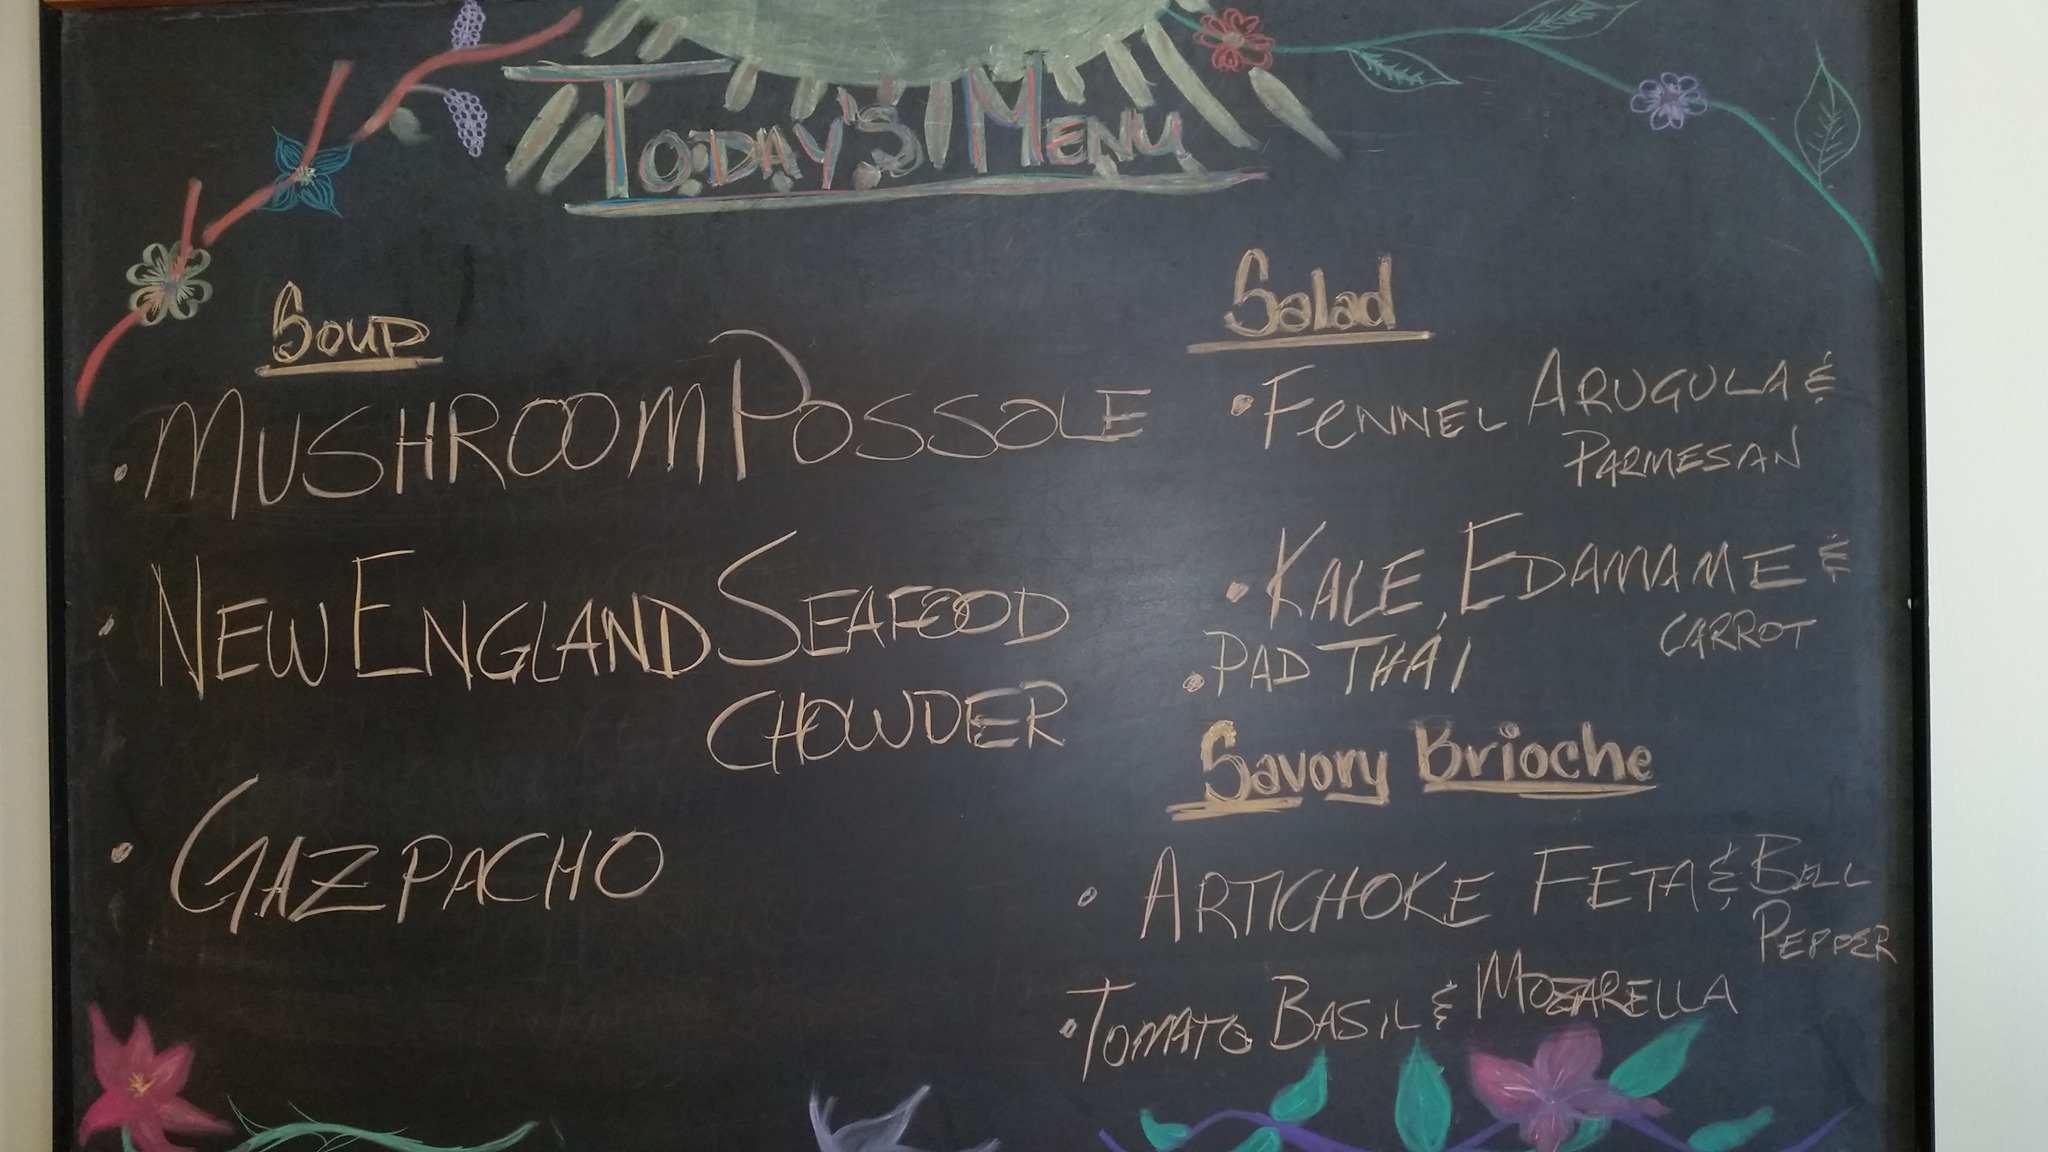 TODAY'S MENU
Soup
• MUSHROOM POSSOLE
• NEW ENGLAND SEAFOOD
CHOWDER
• GAZPACHO
Salad
• FENNEL ARUGULA &
PARMESAN
• KALE, EDAMAME &
CARROT
• PAD THAI
Savory Brioche
• ARTICHOKE FETA & BELL
PEPPER
• TOMATO BASIL & MOZARELLA